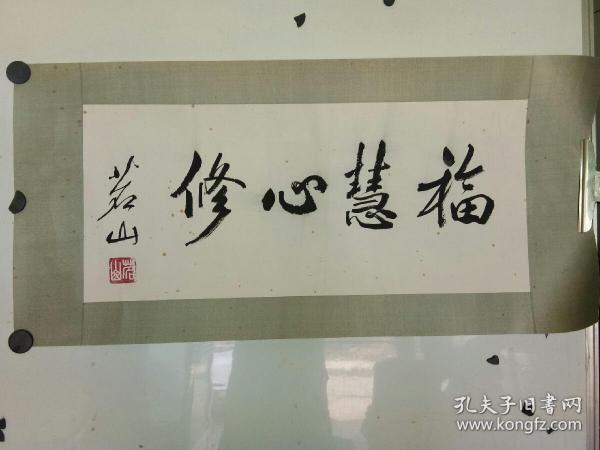 福慧心修
茗山
茗山
孔夫子旧書网
www.kongfz.com